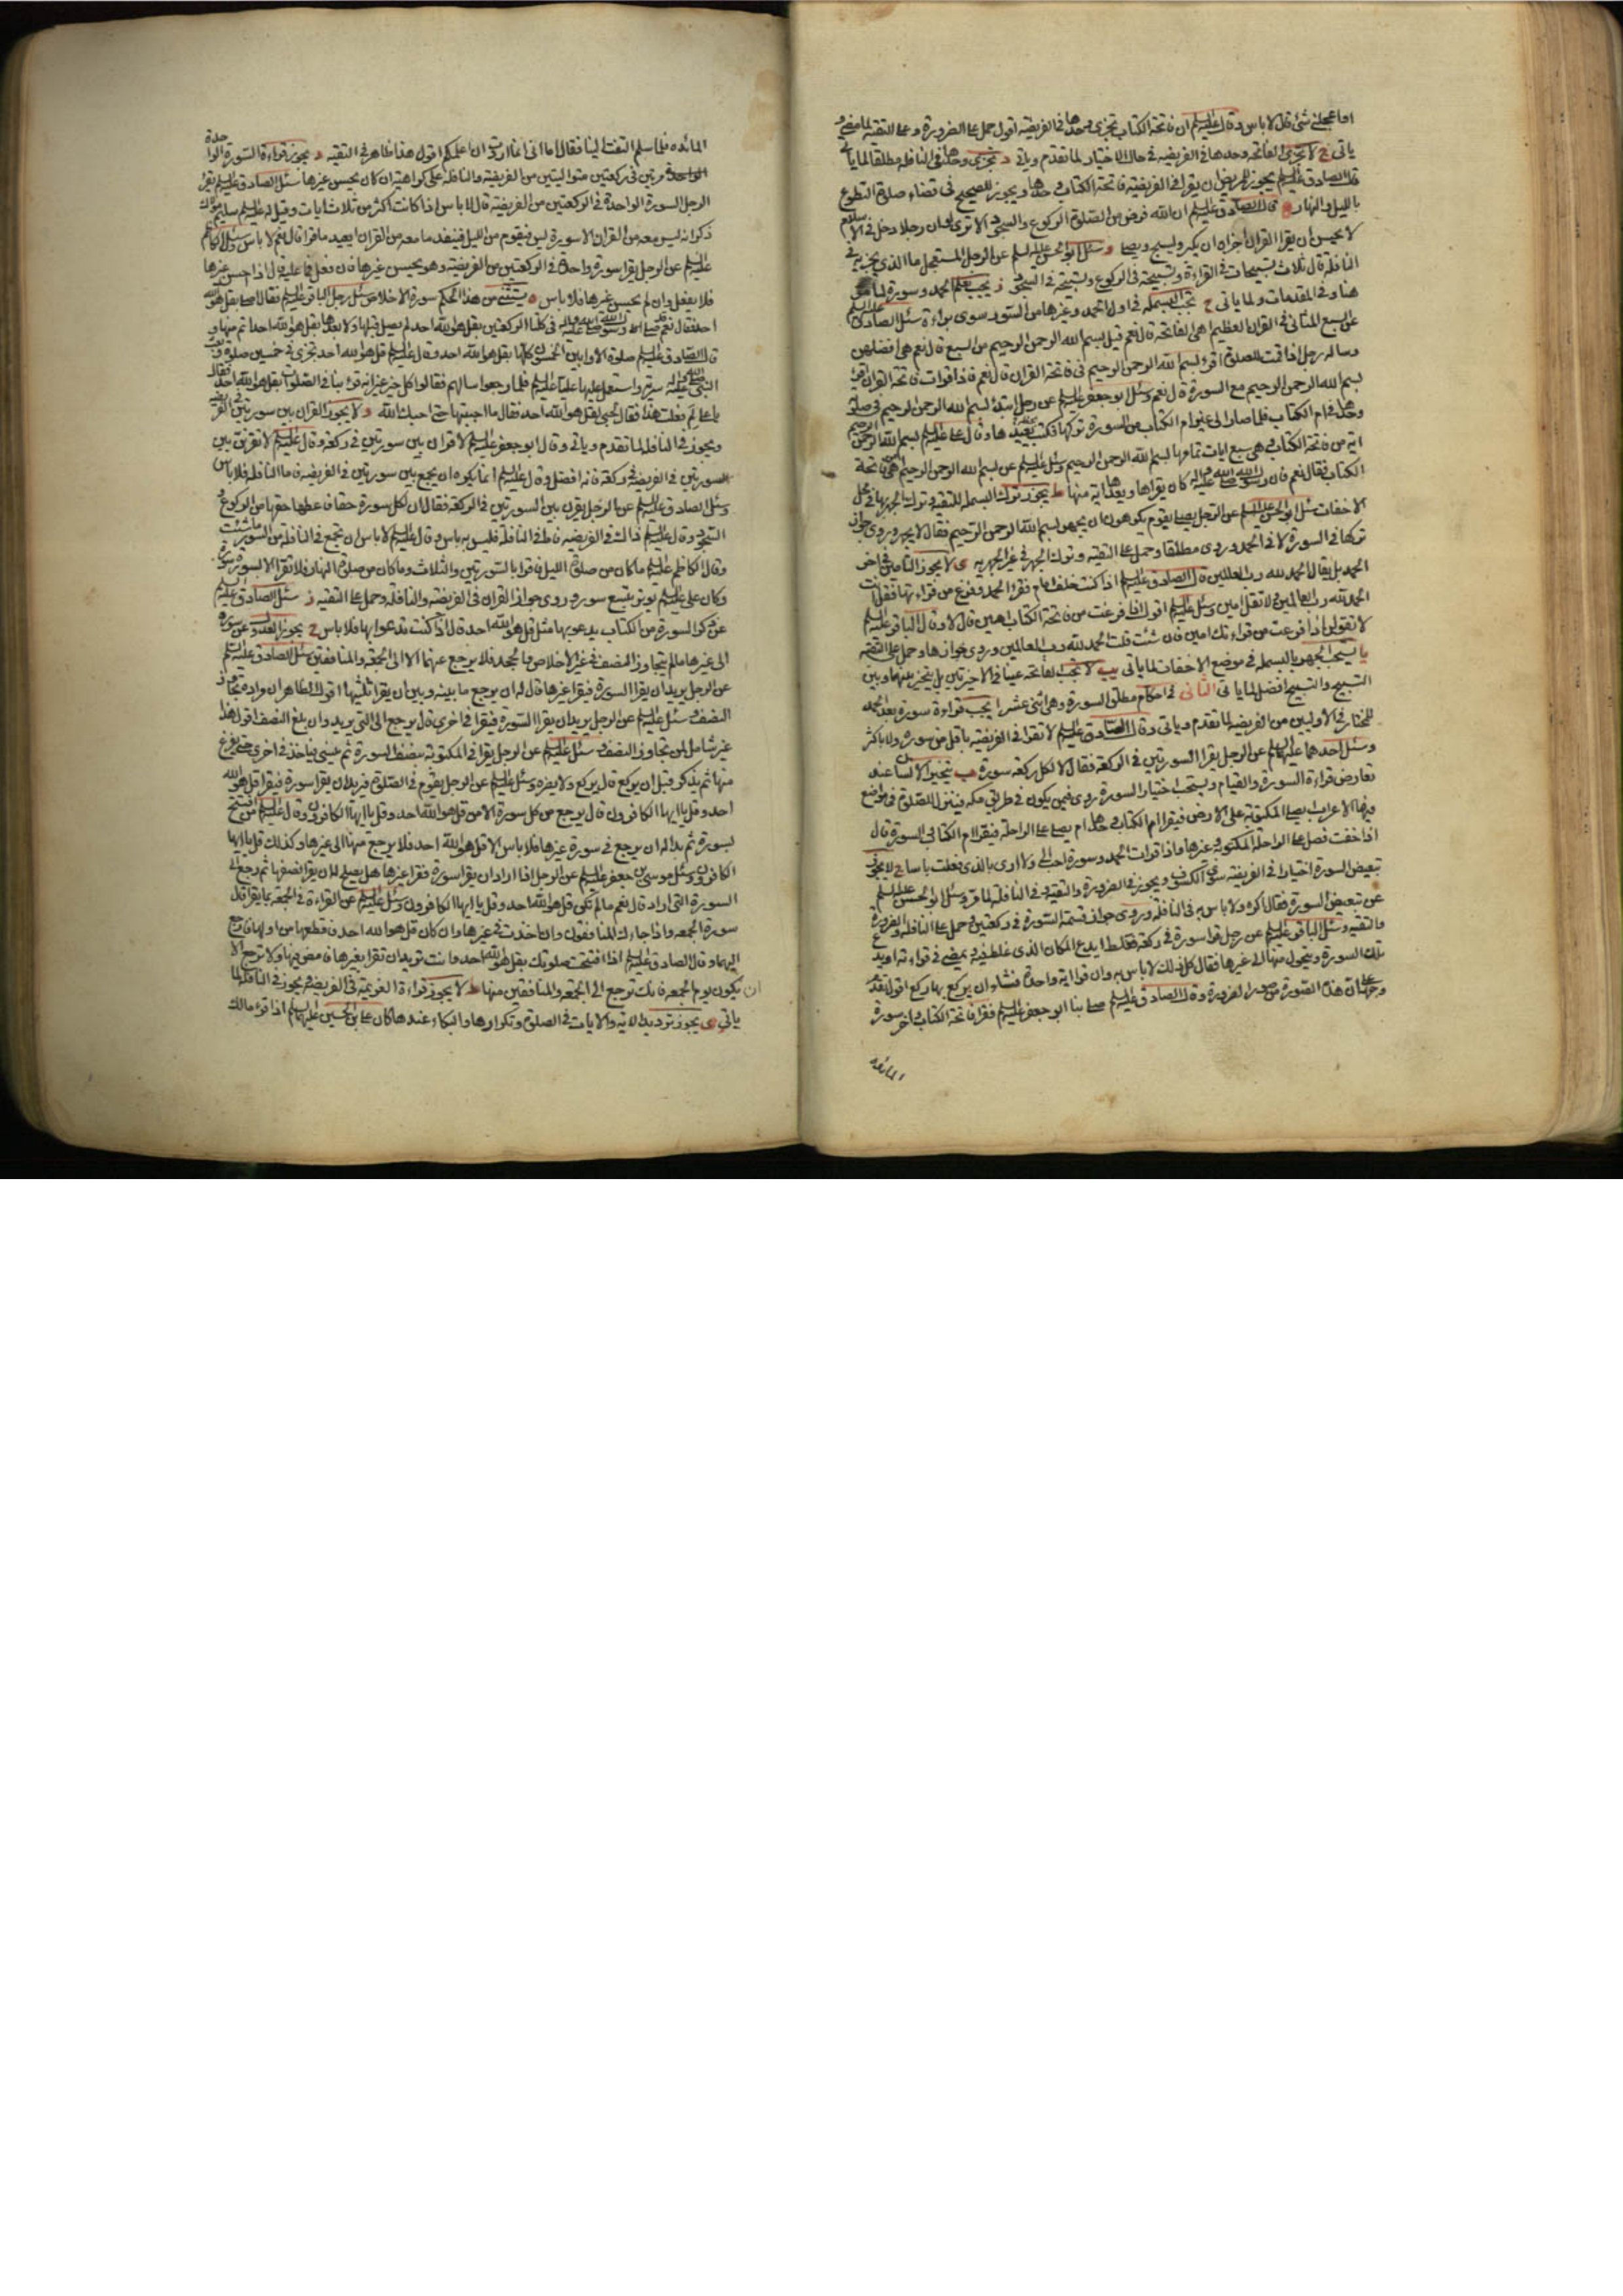 اما عجلني شئ قال لا باس وقال عليه السلام ان فاتحة الكتاب تجزي وحدها في الفريضه اقول حمل على الضرورة وعلى التقية لما مضى و
ياتي ج لا تجزي الفاتحه وحدها في الفريضه في حال الاختيار لما تقدم وياتي د تجزي وحدها في النافله مطلقا لما ياتي
قال الصادق عليه السلام يجوز للمريض ان يقرا في الفريضة فاتحة الكتاب وحدها ويجوز للصحيح في قضاء صلوة التطوع
بالليل والنهار ه قال الصادق عليه السلام ان الله فرض من الصلوة الركوع والسجود الا ترى لو ان رجلا دخل في الاسلام
لا يحسن ان يقرا القران اجزاه ان يكبر ويسبح ويصلي و سئل ابو الحسن عليه السلام عن الرجل المستعجل ما الذي يجزيه في
النافلة قال ثلاث تسبيحات في القراءة وتسبيحة في الركوع وتسبيحة في السجود ز يجب تعلم الحمد وسورة لما مر
هنا وفي المقدمات ولما ياتي ح تجب البسمله في اول الحمد وغيرها من السور سوى براءة سئل الصادق عليه السلام
عن السبع المثاني في القران العظيم اهي الفاتحة قال نعم قيل بسم الله الرحمن الرحيم من السبع قال نعم هي افضلهن
وساله رجل اذا قمت للصلوة اقرء بسم الله الرحمن الرحيم في فاتحة القران قال نعم قال فاذا قرات فاتحة القران اقرء
بسم الله الرحمن الرحيم مع السورة قال نعم وسئل ابو جعفر عليه السلام عن رجل ابتدأ ببسم الله الرحمن الرحيم في صلوته
وحده في ام الكتاب فلما صار الى غير ام الكتاب من السورة تركها فكتب يعيدها وقال علي عليه السلام بسم الله الرحمن الرحيم
اية من فاتحة الكتاب وهي سبع ايات تمامها بسم الله الرحمن الرحيم وسئل عليه السلام عن بسم الله الرحمن الرحيم اهي من فاتحة
الكتاب فقال نعم كان رسول الله صلى الله عليه واله يقراها ويعدها اية منها ط يجوز ترك البسمله للتقية وترك الجهر بها في محل
الاخفات سئل ابو الحسن عليه السلام عن الرجل يصلي بقوم يكرهون ان يجهر ببسم الله الرحمن الرحيم فقال لا يجهر وروي جواز
تركها في السورة لا في الحمد وروي مطلقا وحمل على التقيه وترك الجهر في غير الجهريه ى لا يجوز التامين في اخر
الحمد بل يقال الحمد لله رب العالمين قال الصادق عليه السلام اذا كنت خلف امام فقرا الحمد وفرغ من قراءتها فقل انت
الحمد لله رب العالمين ولا تقل امين وسئل عليه السلام اقول اذا فرغت من فاتحة الكتاب امين قال لا وقال الباقر عليه السلام
لا تقولن اذا فرغت من قراءتك امين فان شئت قلت الحمد لله رب العالمين وروي جوازها وحمل على التقيه
يا يستحب الجهر بالبسمله في موضع الاخفات لما ياتي يب لا تجب الفاتحه عينا في الاخيرتين بل يتخير بينها وبين
التسبيح والتسبيح افضل لما ياتي الثاني في احكام مطلق السورة وهي اثني عشر ا يجب قراءة سورة بعد الحمد
للمختار في الاوليين من الفريضه لما تقدم وياتي وقال الصادق عليه السلام لا تقرا في الفريضه باقل من سورة ولا باكثر
وسئل احدهما عليهما السلام عن الرجل يقرا السورتين في الركعة فقال لا لكل ركعه سورة ب يتخير الانسان عند
تعارض قراءة السورة والقيام ويستحب اختيار السورة روي فيمن يكون في طريق مكه فينزل للصلوة في مواضع
فيها الاعراب ايصلي المكتوبة على الارض فيقرا ام الكتاب وحدها ام يصلي على الراحلة فيقرا ام الكتاب والسورة قال
اذا خفت فصل على الراحلة المكتوبة وغيرها واذا قرات الحمد وسورة احب الي ولا ارى بالذي فعلت باسا ج لا يجوز
تبعيض السورة اختيارا في الفريضه سوى الكسوف ويجوز في الضرورة والتقية وفي النافلة لما مر وسئل ابو الحسن عليه السلام
عن تبعيض السورة فقال اكره ولا باس به في النافلة وروي جواز قسمة السورة في ركعتين وحمل على النافلة والضرورة
والتقيه وسئل الباقر عليه السلام عن رجل قرا سورة في ركعة فغلط ايدع المكان الذي غلط فيه ويمضي في قراءته او يدع
تلك السورة ويتحول منها الى غيرها فقال كل ذلك لا باس به وان قرا اية واحدة فشاء ان يركع بها ركع اقول تقدم
وجهه على ان هذه الصورة من صور الضرورة وقال الصادق عليه السلام صلى بنا ابو جعفر عليه السلام فقرا فاتحة الكتاب واخر سورة
المائده
المائده فلما سلم التفت الينا فقال اما اني انما اردت ان اعلمكم اقول هذا ظاهر في التقيه د يجوز قراءة السورة الواحدة
مرتين في ركعتين متواليتين من الفريضة والنافلة على كراهية ان كان يحسن غيرها سئل الصادق عليه السلام يقرا
الرجل السورة الواحدة في الركعتين من الفريضة قال لا باس اذا كانت اكثر من ثلاث ايات وقيل له عليه السلام
ذكر انه ليس معه من القران الا سورة يس فيقوم من الليل فينفد ما معه من القران ايعيد ما قرا قال نعم لا باس وسئل الكاظم
عليه السلام عن الرجل يقرا سورة واحدة في الركعتين من الفريضة وهو يحسن غيرها فان فعل فما عليه قال اذا احسن غيرها
فلا يفعل وان لم يحسن غيرها فلا باس ه يستثنى من هذا الحكم سورة الاخلاص سئل رجل الباقر عليه السلام فقال اصلي بقل هو الله
احد فقال نعم قد صلى رسول الله صلى الله عليه واله في كلتا الركعتين بقل هو الله احد لم يصل قبلها ولا بعدها بقل هو الله احد اتم منها و
قال الصادق عليه السلام صلوة الاوابين الخمسون كلها بقل هو الله احد وقال عليه السلام قل هو الله احد تجزي في خمسين صلوة وبعث
النبي صلى الله عليه واله سرية واستعمل عليها عليا عليه السلام فلما رجعوا سالهم فقالوا كل خير غير انه قرء بنا في الصلوات بقل هو الله احد فقال
يا علي لم فعلت هذا فقال لحبي لقل هو الله احد فقال ما احببتها حتى احبك الله و لا يجوز القران بين سورتين في الفريضه
ويجوز في النافلة لما تقدم وياتي وقال ابو جعفر عليه السلام لا قران بين سورتين في ركعة وقال عليه السلام لا تقرنن بين
السورتين في الفريضة في ركعة فانه افضل وقال عليه السلام انما يكره ان يجمع بين سورتين في الفريضه فاما النافله فلا باس
وسئل الصادق عليه السلام عن الرجل يقرن بين السورتين في الركعة فقال ان لكل سورة حقا فاعطها حقها من الركوع و
السجود وقال عليه السلام ذالك في الفريضه فاما في النافلة فليس به باس وقال عليه السلام لا باس ان تجمع في النافلة من السور ما شئت
وقال الكاظم عليه السلام ما كان من صلوة الليل فاقرا بالسورتين والثلاث وما كان من صلوة النهار فلا تقرا الا بسورة سورة
وكان علي عليه السلام يوتر بتسع سور وروي جواز القران في الفريضة والنافلة وحمل على التقيه ز سئل الصادق عليه السلام
عن ذكر السورة من الكتاب يدعو بها مثل قل هو الله احد قال اذا كنت تدعو بها فلا باس ح يجوز العدول عن سورة
الى غيرها ما لم يتجاوز النصف في غير الاخلاص والجحد فلا يرجع عنهما الا الى الجمعة والمنافقين سئل الصادق عليه السلام
عن الرجل يريد ان يقرا السورة فيقرا غيرها قال له ان يرجع ما بينه وبين ان يقرا ثلثيها اقول الظاهر ان المراد مقدار تجاوز
النصف وسئل عليه السلام عن الرجل يريد ان يقرا السورة فيقرا في اخرى قال يرجع الى التي يريد وان بلغ النصف اقول هذا
غير شامل لمن تجاوز النصف وسئل عليه السلام عن الرجل يقرا في المكتوبة بنصف السورة ثم ينسى فياخذ في اخرى حتى يفرغ
منها ثم يذكر قبل ان يركع قال يركع ولا يضره وسئل عليه السلام عن الرجل يقوم في الصلوة فيريد ان يقرا سورة فيقرا قل هو الله
احد وقل يا ايها الكافرون قال يرجع من كل سورة الا من قل هو الله احد وقل يا ايها الكافرون وقال عليه السلام من افتتح
بسورة ثم بدا له ان يرجع في سورة غيرها فلا باس الا قل هو الله احد فلا يرجع منها الى غيرها وكذلك قل يا ايها
الكافرون وسئل موسى بن جعفر عليه السلام عن الرجل اذا اراد ان يقرا سورة فقرا غيرها هل يصلح له ان يقرا نصفها ثم يرجع الى
السورة التي اراد قال نعم ما لم تكن قل هو الله احد وقل يا ايها الكافرون وسئل عليه السلام عن القراءة في الجمعة بما يقرا قال
سورة الجمعه واذا جاءك المنافقون وان اخذت في غيرها وان كان قل هو الله احد فاقطعها من اولها وارجع
اليها وقال الصادق عليه السلام اذا افتتحت صلوتك بقل هو الله احد وانت تريد ان تقرا بغيرها فامض فيها ولا ترجع الا
ان يكون يوم الجمعه فانك ترجع الى الجمعه والمنافقين منها ط لا يجوز قراءة العزيمة في الفريضه ويجوز في النافلة لما
ياتي ى يجوز ترديد الاية والايات في الصلوة وتكرارها والبكاء عندها كان علي بن الحسين عليهما السلام اذا قرء مالك